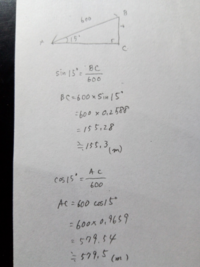 600
B
A
15°
C
sin15° = BC/600
BC = 600 × sin15°
= 600 × 0.2588
= 155.28
≒ 155.3 (m)
cos15° = AC/600
AC = 600 cos15°
= 600 × 0.9659
= 579.54
≒ 579.5 (m)